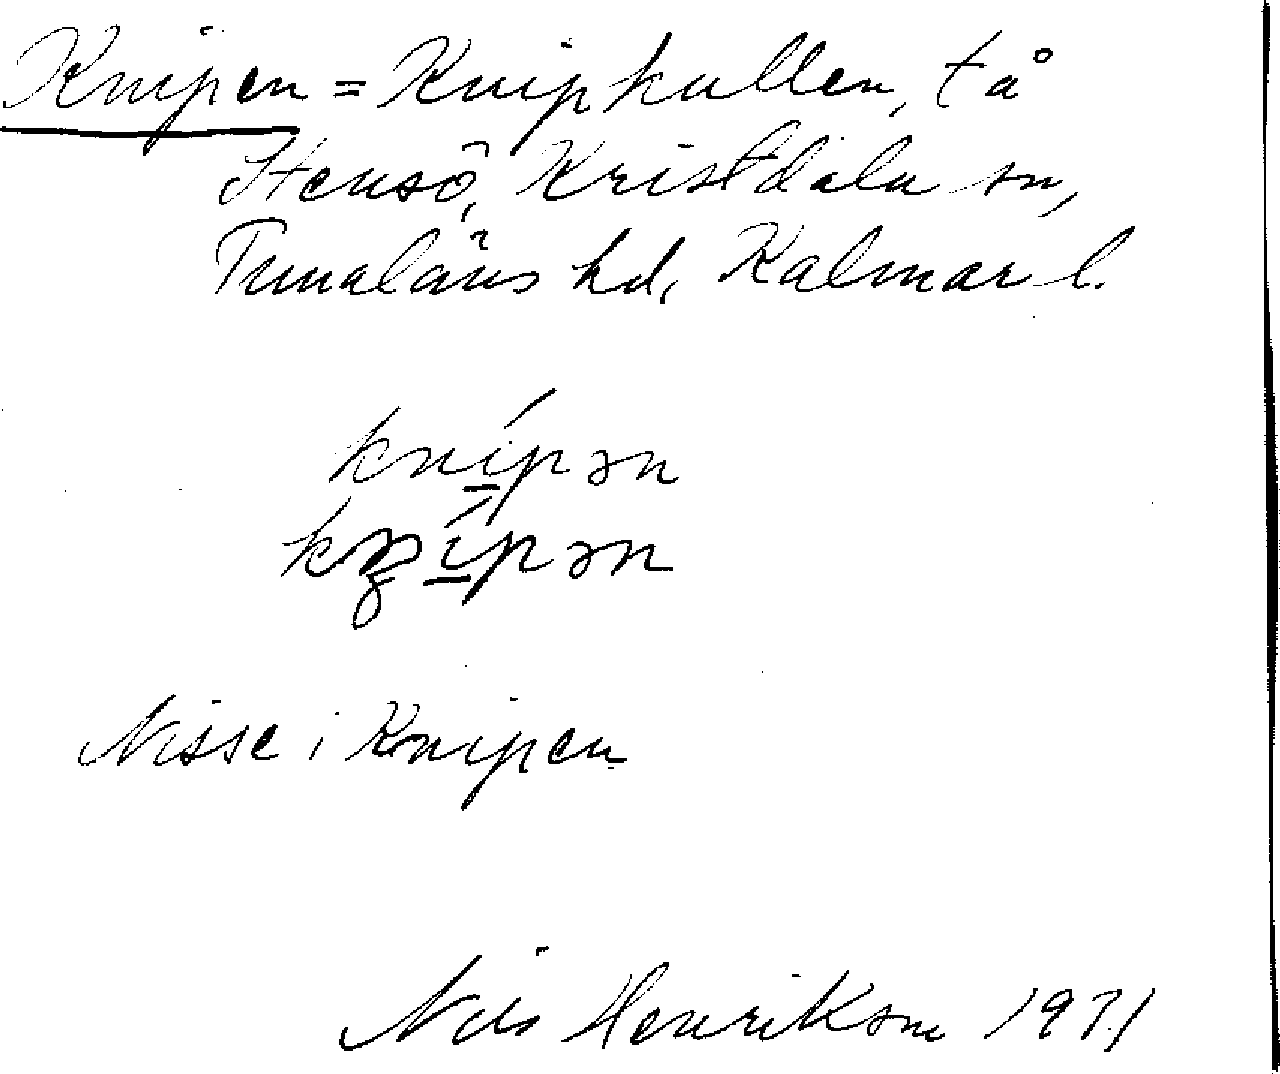 Knipen = Knipkullen, t å
Stensö, Kristdala sn,
Tunaläns hd, Kalmar l.
kní̲pən
í̲pən
Nisse i Knipen
Nils Henrikson 1971